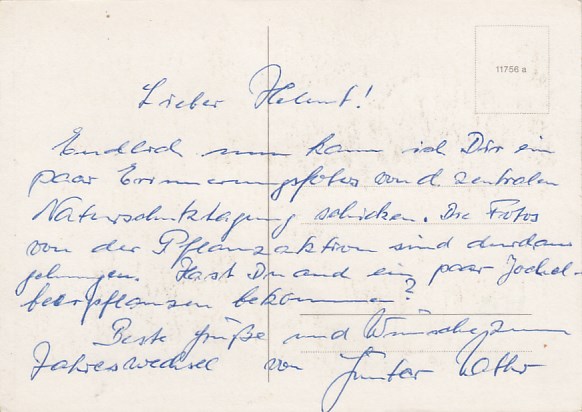 11756 a
Lieber Helmut!
Endlich nun kann ich Dir ein
paar Erinnerungsfotos von d. zentralen
Naturschutztagung schicken. Die Fotos
von der Pflanzaktion sind durchaus
gelungen. Hast Du auch ein paar Jochel-
beerpflanzen bekommen?
Beste Grüße und Wünsche zum
Jahreswechsel von Günter